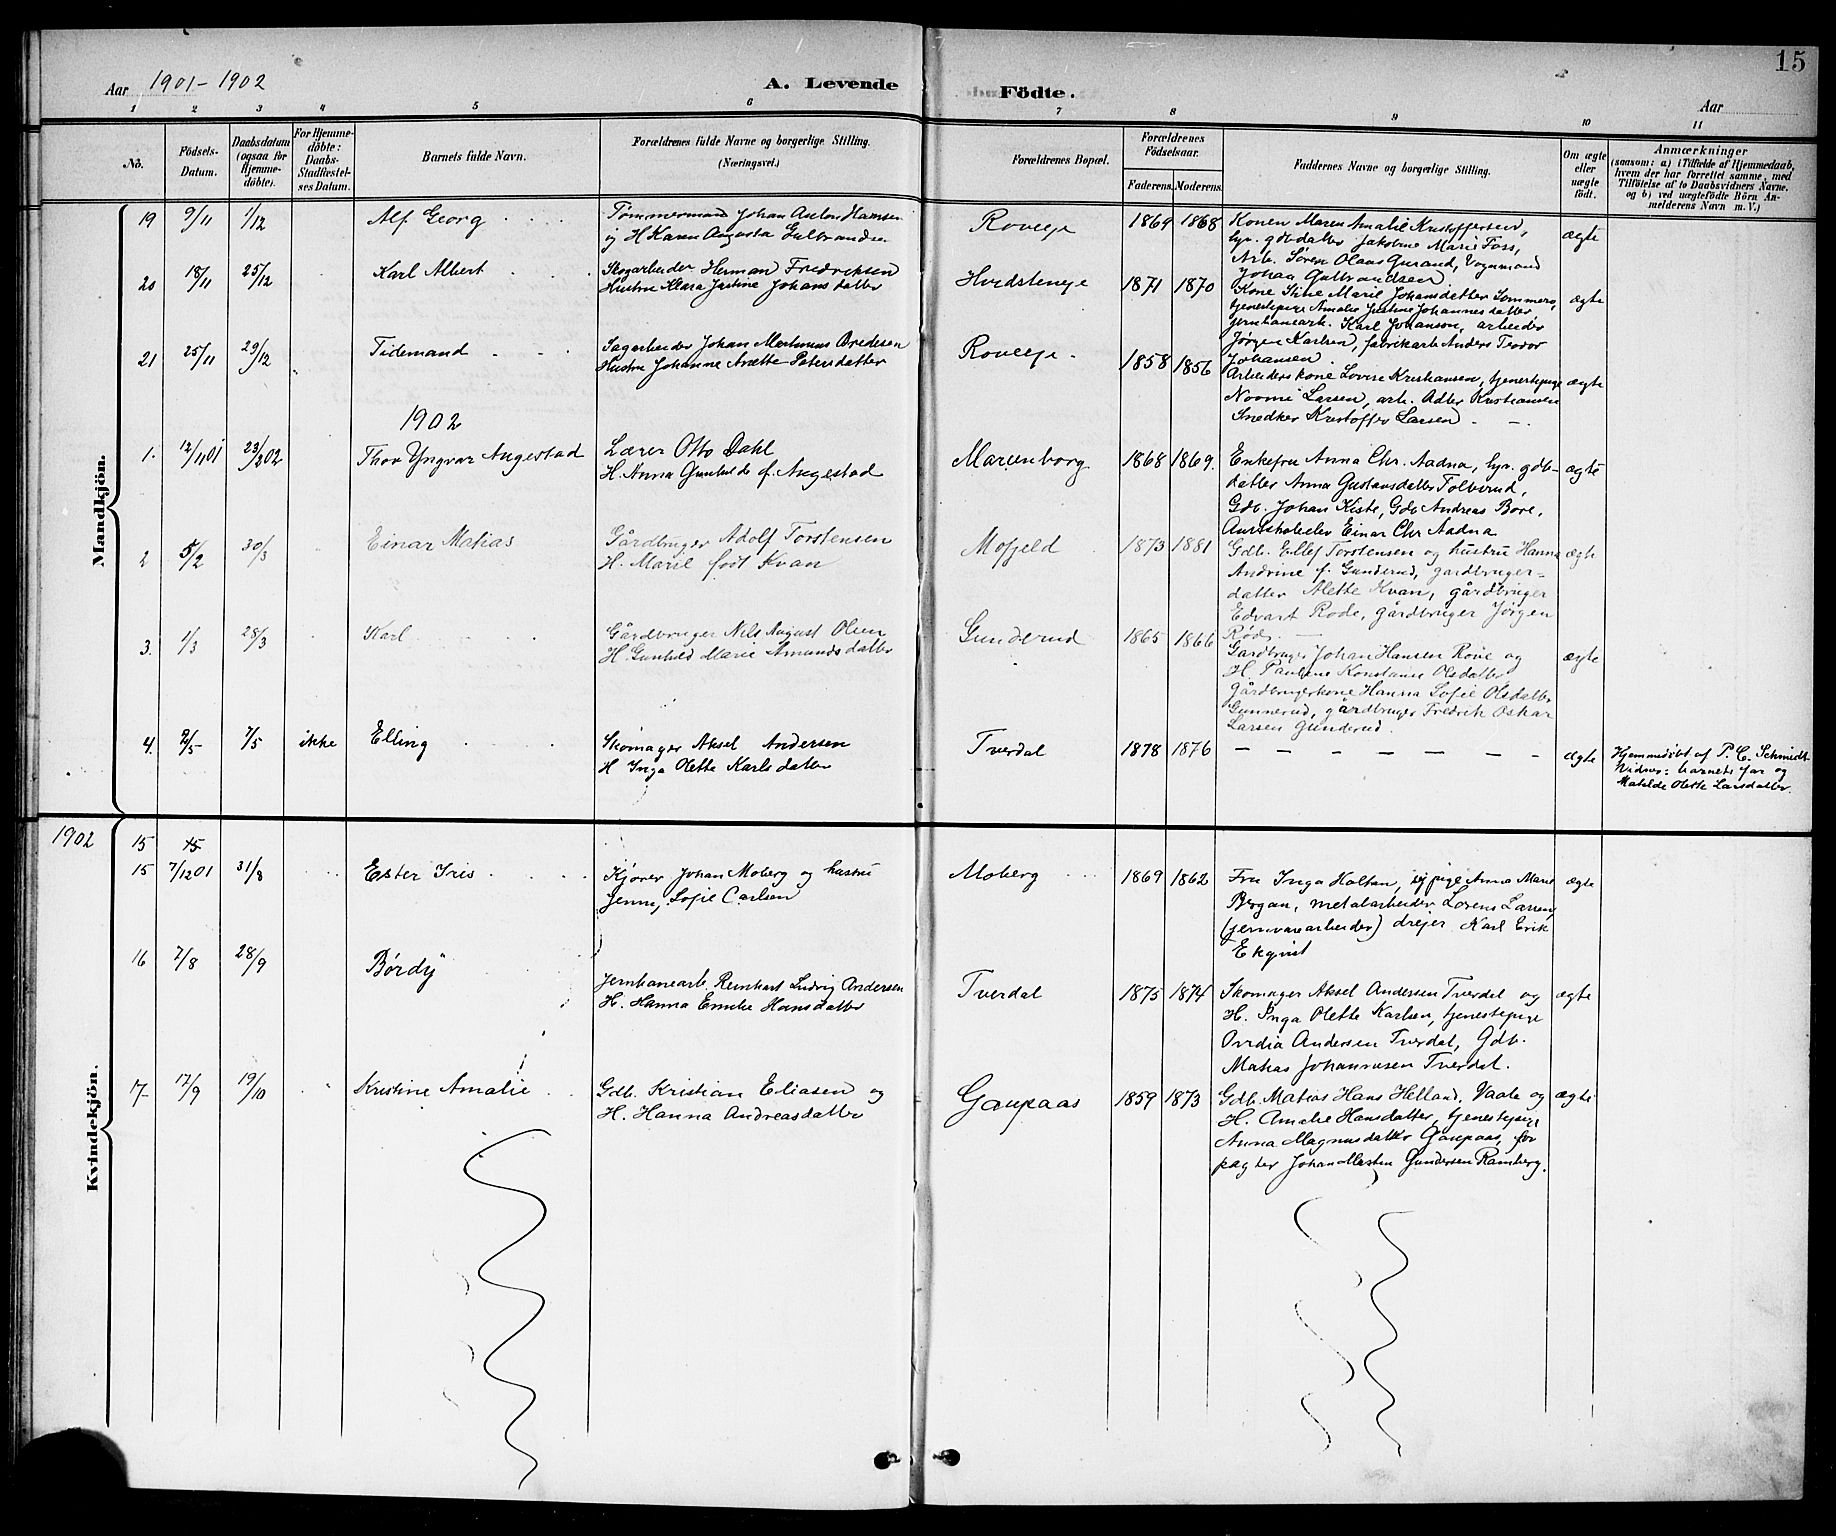 15
Aar 1901-1902
A. Levende Födte.
Aar
1 2 3 4 5 6 7 8 9 10 11
No.
Födsels-Datum.
Daabsdatum (ogsaa for Hjemme-döbte).
For Hjemme-döbte: Daabs-Stadfæstel-ses Datum.
Barnets fulde Navn.
Forældrenes fulde Navne og borgerlige Stilling.
(Næringsvei.)
Forældrenes Bopæl.
Forældrenes Födselsaar.
Faderens. Moderens.
Faddernes Navne og borgerlige Stilling.
Om ægte eller uægte födt.
Anmærkninger
(saasom: a) i Tilfælde af Hjemmedaab,
hvem der har forrettet samme, med
Tilföielse af to Daabsvidners Navne.
og b) ved uægtefödte Börn An-
melderens Navn m. V.)
Mandkjön.
19 9/11 1/12 Alf Georg Tømmermand Johan Anton Hansen Roveeje 1869 1868 Konen Maren Amalie Kristoffersen, ægte
og H Karen Augusta Gulbrandsen
hyr. gdb.datter Jakobine Marie Foss,
Arb. Søren Olaus Gurand, Vognmand
Johan Gulbrandsen
20 18/11 25/12 Karl Albert Skogarbeider Herman Fredriksen Hvidsteneje 1871 1870 Kone Stine Marie Johansdatter Sommero, ægte
Hustru Klara Justine Johansdatter
tjenestepige Amalie Justine Johannesdatter
jernbanearb. Karl Johanson, arbeider
Jørgen Karlsen, fabrikarb Anders Teodor
Johansen.
21 25/11 29/12 Tidemand Sagarbeider Johan Martinus Bredesen Roveeje. 1858 1856 Arbeiderskone Lovise Kristiansen, tjenestepige ægte
Hustru Johanne Anette Petersdatter
Noomi Larsen, arb. Adler Kristiansen
Snedker Kristoffer Larsen
1902
1. 12/11 01 23/2 02 Thor Yngvar Augestad Lærer Otto Dahl Marienborg 1868 1869. Enkefru Anna Chr. Aadna, hyr. gdb- ægte
H. Anna Gunhilde f. Augestad
datter Anna Gustavsdatter Tolverud,
Gdb. Johan Kiste, Gdb Andreas Bore,
Amtskoleelev Einar Chr Aadna
2 5/2 30/3 Einar Matias Gårdbruger Adolf Torstensen Mofjeld 1873 1881 Gdb. Ellef Torstensen og hustru Hanna ægte
H. Marie født Kvan
Andrine f. Gunderud, gardbruger-
datter Alette Kvan, gårdbruger
Edvart Rode, gårdbruger Jørgen
Rød.
3. 1/3 28/3 Karl Gårdbruger Nils August Olsen Gunderud 1865 1866 Gardbruger Johan Hansen Rove og ægte
H. Gunhild Marie Amundsdatter
H. Pauline Konstanse Olsdatter
gårdbrugerkone Hanna Sofie Olsdatter
Gunnerud, gårdbruger Fredrik Oskar
Larsen Gunderud.
4. 2/5 7/5 ikke Elling Skomager Aksel Andersen Tverdal 1878 1876 — — — — — — — ægte Hjemmedøbt af P. C. Schmidt
H Inga Olette Karlsdatter
Vidner: barnets far og
Matilde Olette Larsdatter.
Kvindekjön.
1902 15 15
15 7/12 01 31/8 Ester Iris Kjører Johan Moberg og hustru Moberg 1869 1862 Fru Inga Holtan, sypige Anna Marie ægte
Jenny Sofie Carlsen
Bergan, metalarbeider Lorens Larsen
(jernvarearbeider) drejer Karl Erik
Ekqvist
16 7/8 28/9 Børdy Jernbanearb. Reinhart Ludvig Andersen Tverdal 1875 1874 Skomager Aksel Andersen Tverdal og ægte
H. Hanna Emilie Hansdatter
H. Inga Olette Karlsen, tjenestepige
Ovidia Andersen Tverdal, Gdb.
Matias Johannesen Tverdal.
17- 17/9 19/10 Kristine Amalie Gdb. Kristian Eliasen og Gaupaas 1859 1873 Gdb. Matias Hans Helland, Vaale og ægte
H. Hanna Andreasdatter
H. Amalie Hansdatter, tjenestepige
Anna Magnusdatter Gaupaas, for
pagter Johan Martin Gundersen Ramberg.